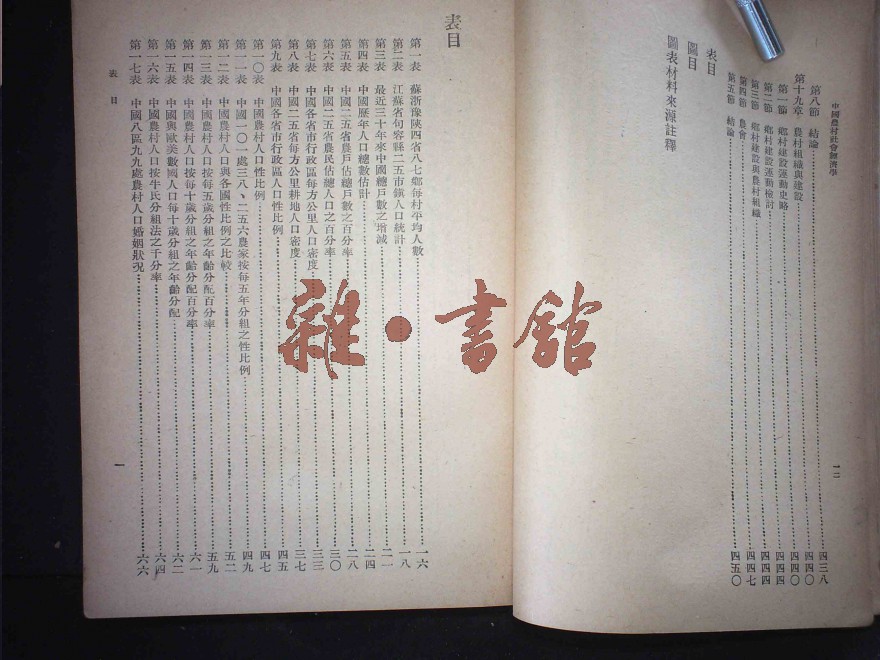 中國農村社會經濟學
第八節 結論……四三八
第十九章 農村組織與建設……四四〇
第一節 鄉村建設運動史略……四四〇
第二節 鄉村建設運動檢討……四四四
第三節 鄉村建設與農村組織……四四四
第四節 農會……四四七
第五節 結論……四五〇
表目
圖目
圖表材料來源註釋
一二
表目
第一表 蘇浙豫陝四省八七鄉每村平均人數……一六
第二表 江蘇省句容縣二五市鎮人口統計……一八
第三表 最近三十年來中國總戶數之增減……二一
第四表 中國歷年人口總數估計……二四
第五表 中國二五省農戶佔總戶數之百分率……二八
第六表 中國二五省農民佔總人口之百分率……三〇
第七表 中國各省市行政區每方公里人口密度……三三
第八表 中國二五省每方公里耕地人口密度……三七
第九表 中國各省市行政區人口性比例……四五
第一〇表 中國農村人口性比例……四七
第一一表 中國一〇一處三八、二五六農家按每五年分組之性比例……四九
第一二表 中國農村人口與各國性比例之比較……五二
第一三表 中國農村人口按每五歲分組之年齡分配百分率……五九
第一四表 中國農村人口按每十歲分組之年齡分配百分率……六一
第一五表 中國與歐美數國人口每十歲分組之年齡分配……六二
第一六表 中國農村人口按牛氏分組法之千分率……六四
第一七表 中國八區九九處農村人口婚姻狀況……六六
表目
一
雜·書館